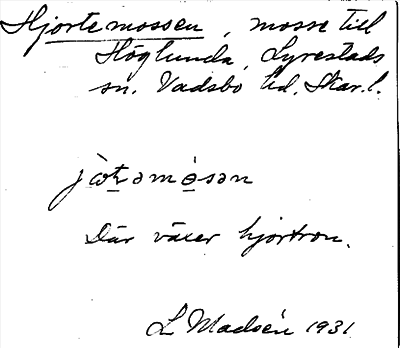 Hjortemossen, mosse till
Höglunda, Lyrestads
sn. Vadsbo hd. Skar. l.
Där växer hjortron.
L Madsén 1931